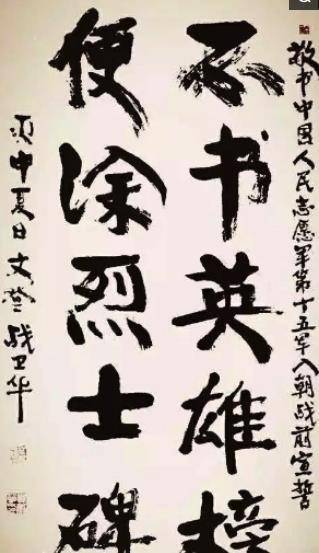 敬书中国人民志愿军第十五军入朝战前宣誓
不书英雄榜
便涂烈士碑
中夏日文登战卫华